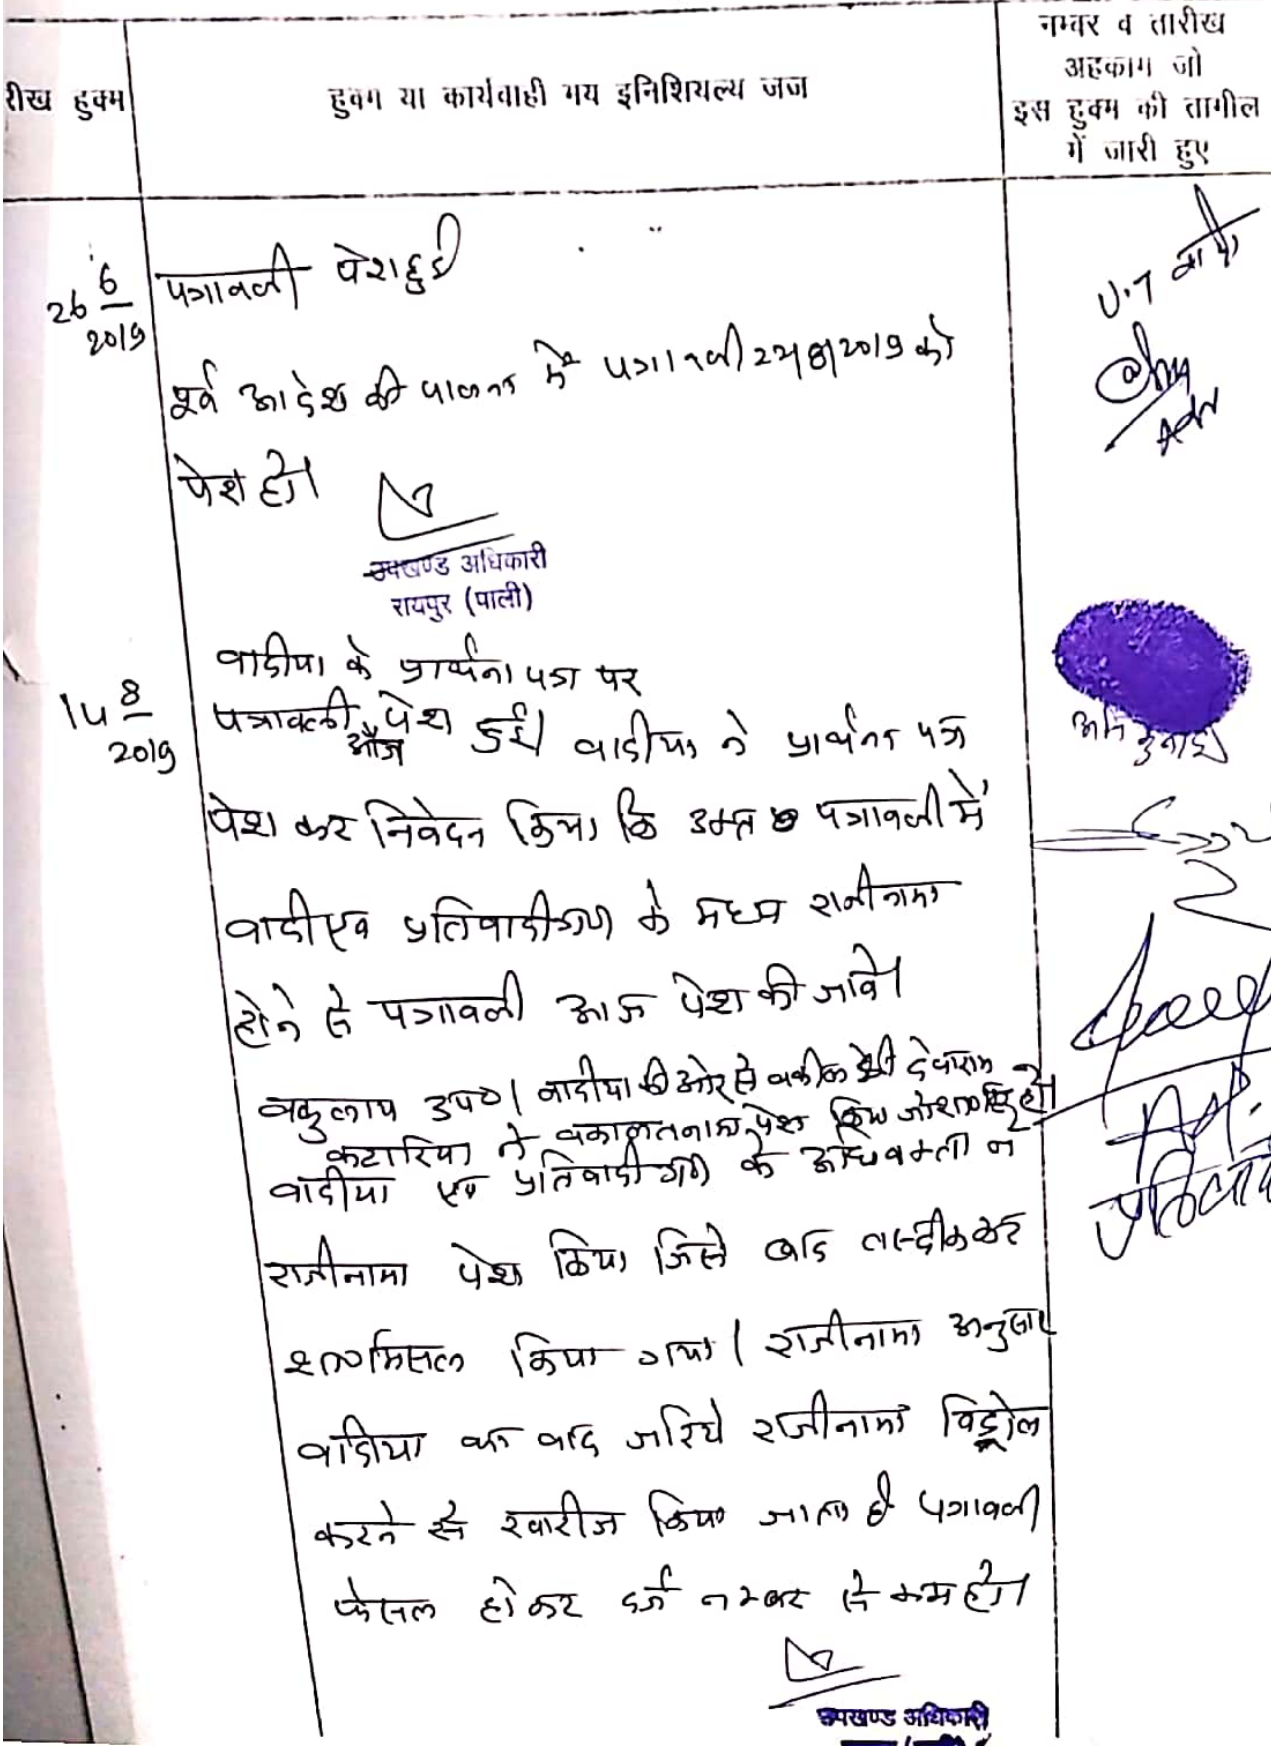 रीख हुक्म
हुक्म या कार्यवाही मय इनिशियल्य जज
नम्बर व तारीख
अहकाम जो
इस हुक्म की तामील
में जारी हुए
26 6/2019
पत्रावली पेश हुई
पूर्व आदेश की पालना में पत्रावली 22/8/2019 को
पेश हो।
उपखण्ड अधिकारी
रायपुर (पाली)
U.T
Adv
14 8/2019
वादीया के प्रार्थना पत्र पर
पत्रावली आज पेश हुई। वादीया ने प्रार्थना पत्र
पेश कर निवेदन किया कि उक्त पत्रावली में
वादी एव प्रतिवादीगण के मध्य राजीनामा
होने से पत्रावली आज पेश की जावे।
वकुलाय उप०। वादीया की ओर से वकील श्री देवाराम
कटारिया ने वकालतनामा पेश किया जो शा० मि० हो।
वादीया एव प्रतिवादीगण के अधिवक्ता ने
राजीनामा पेश किया जिसे बाद तस्दीक कर
शा०मिसल किया गया। राजीनामा अनुसार
वादीया का वाद जरिये राजीनामा विड्रोल
करने से खारीज किया जाता है पत्रावली
फेसल होकर दर्ज नम्बर से कम हो।
उपखण्ड अधिकारी